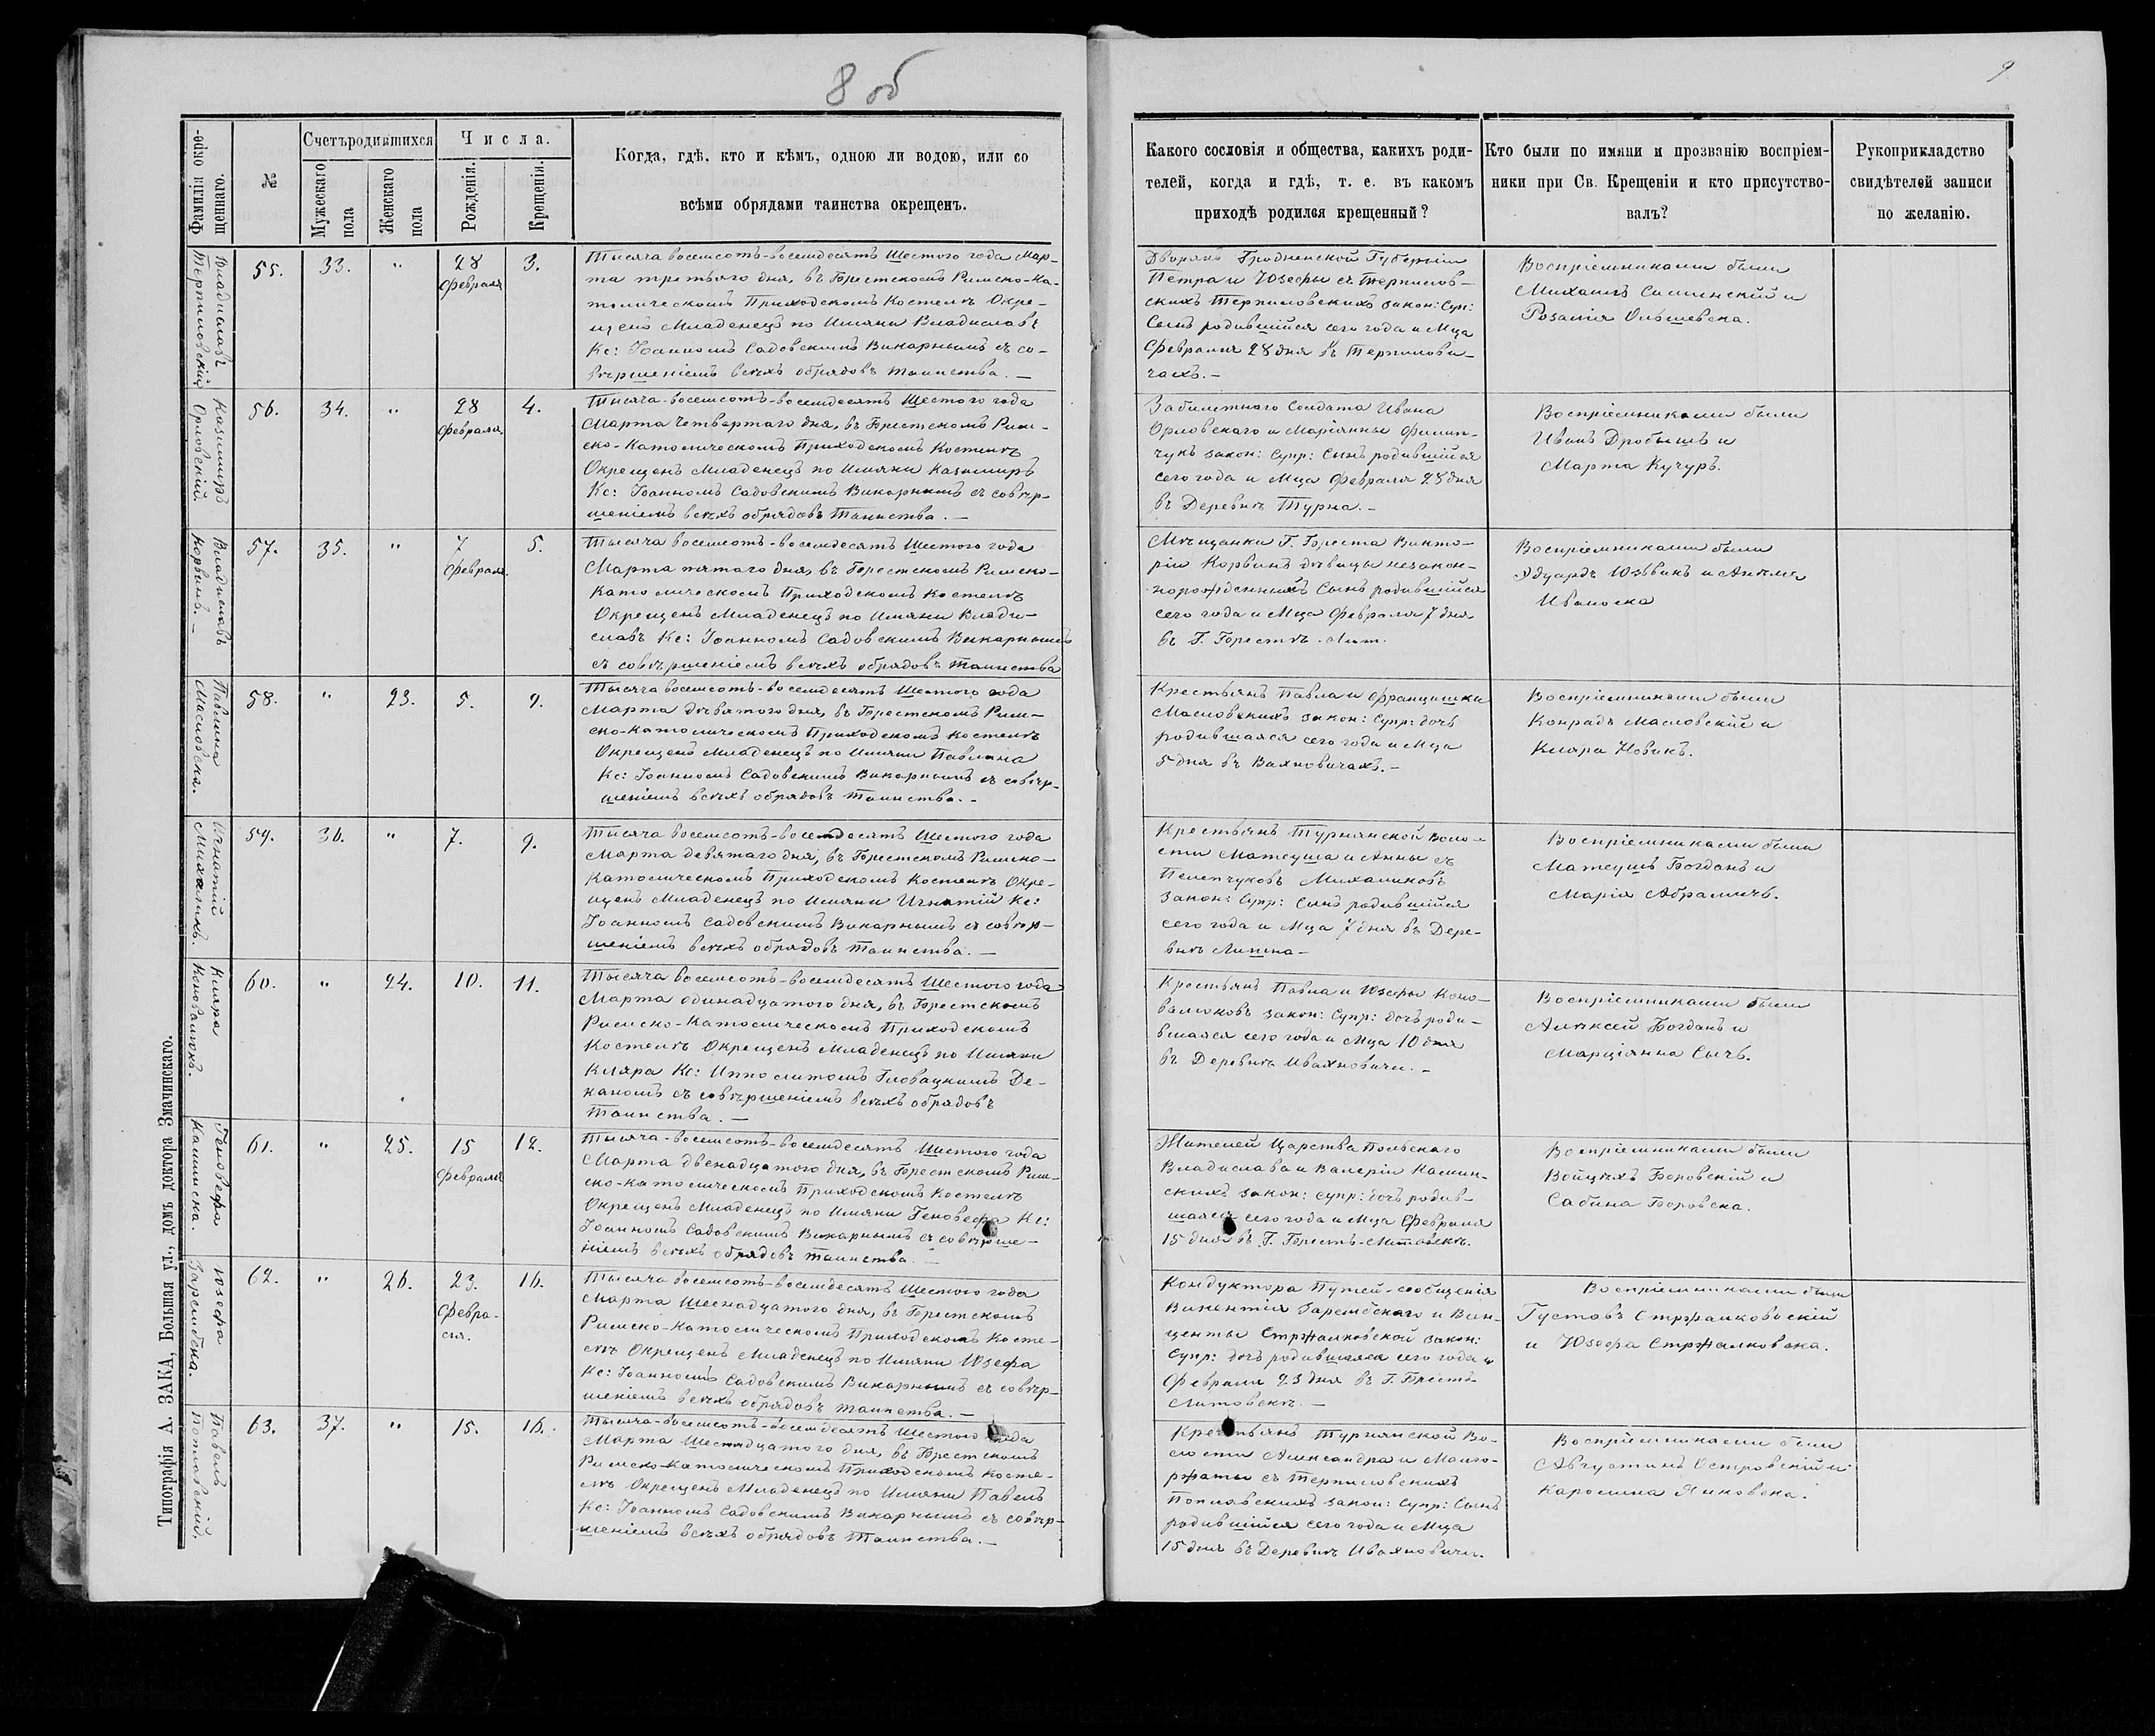 8 об
9
Фамилія окре-
щеннаго.
№
Счетъ родившихся
Мужескаго
пола
Женскаго
пола
Числа.
Рожденія.
Крещенія.
Когда, гдѣ, кто и кѣмъ, одною ли водою, или со
всѣми обрядами таинства окрещенъ.
Какого сословія и общества, какихъ роди-
телей, когда и гдѣ, т. е. въ какомъ
приходѣ родился крещенный?
Кто были по имяни и прозванію воспріем-
ники при Св. Крещеніи и кто присутство-
валъ?
Рукоприкладство
свидѣтелей записи
по желанію.
Владиславъ
Терпиловскій
55.
33.
"
28
Февраля
3.
Тысяча восемсотъ-восемдесятъ Шестого года Мар-
та третьяго дня, въ Брестскомъ Римско-Ка-
толическомъ Приходскомъ Костелѣ Окре-
щенъ Младенецъ по Имяни Владиславъ
Кс: Іоанномъ Садовскимъ Викарнымъ съ со-
вѣршеніемъ всѣхъ обрядовъ таинства. —
Дворянъ Гродненской Губерніи
Петра и Юзефы съ Терпилов-
скихъ Терпиловскихъ закон: Супр:
Сынъ родившійся сего года и Мца
Февраля 28 дня въ Терпилови-
чахъ. —
Воспріемниками были
Михаилъ и
Розалія Ольшевска.
Казимиръ
Орловскій.
56.
34.
"
28
Февраля.
4.
Тысяча-восемсотъ-восемдесятъ Шестого года
Марта Четвертаго дня, въ Брестскомъ Рим-
ско-Католическомъ Приходскомъ Костелѣ
Окрещенъ Младенецъ по Имяни Казимиръ
Кс: Іоанномъ Садовскимъ Викарнымъ съ совѣр-
шеніемъ всѣхъ обрядовъ Таинства. —
Забилетного Солдата Ивана
Орловскаго и Маріянны Филип-
чукъ закон: Супр: Сынъ родившійся
сего года и Мца Февраля 28 дня
въ Деревнѣ Турна. —
Воспріемниками были
Иванъ Дробышъ и
Марта Кучуръ.
Владиславъ
Корвинъ. —
57.
35.
"
7
Февраля.
5.
Тысяча восемсотъ-восемдесятъ Шестого года
Марта пятаго дня, въ Брестскомъ Римско-
Католическомъ Приходскомъ Костелѣ
Окрещенъ Младенецъ по Имяни Влади-
славъ Кс: Іоанномъ Садовскимъ Викарнымъ
съ совѣршеніемъ всѣхъ обрядовъ Таинства
Мѣщанки Г. Бреста Викто-
ріи Корвинъ дѣвицы незакон-
норожденный Сынъ родившійся
сего года и Мца Февраля 7 дня
въ Г. Брестѣ-Лит.
Воспріемниками были
Эдуардъ Юзвикъ и
Павлина
Масловска.
58.
"
23.
5.
9.
Тысяча восемсотъ-восемдесятъ Шестого года
Марта дѣвятого дня, въ Брестскомъ Рим-
ско-Католическомъ Приходскомъ Костелѣ
Окрещенъ Младенецъ по Имяни Павлина
Кс: Іоанномъ Садовскимъ Викарнымъ съ совѣр-
шеніемъ всѣхъ обрядовъ Таинства. —
Крестьянъ Павла и Францишки
Масловскихъ закон: Супр: дочь
родившаяся сего года и Мца
5 дня въ Вахновичахъ. —
Воспріемниками были
Конрадъ Масловскій и
Кляра Новикъ.
Игнатій
Михаликъ.
59.
36.
"
7.
9.
Тысяча восемсотъ-восемдесятъ Шестого года
Марта девятаго дня, въ Брестскомъ Римско-
Католическомъ Приходскомъ Костелѣ Окре-
щенъ Младенецъ по Имяни Игнатій Кс:
Іоанномъ Садовскимъ Викарнымъ съ совѣр-
шеніемъ всѣхъ обрядовъ Таинства. —
Крестьянъ Турнянской Воло-
сти Матеуша и Анны съ
Пелепчуковъ Михаликовъ
Закон: Супр: Сынъ родившійся
сего года и Мца 7 дня въ Дере-
внѣ
Воспріемниками были
Матеушъ Богданъ и
Марія Абрамичъ.
Кляра
Коновалюкъ.
60.
"
24.
10.
11.
Тысяча восемсотъ-восемдесятъ Шестого года
Марта одинадцатого дня, въ Брестскомъ
Римско-Католическомъ Приходскомъ
Костелѣ Окрещенъ Младенецъ по Имяни
Кляра Кс: Ипполитомъ Гловацкимъ Де-
каномъ съ совѣршеніемъ всѣхъ обрядовъ
Таинства. —
Крестьянъ Павла и Юзефы Коно-
валюковъ закон: Супр: дочь роди-
вшаяся сего года и Мца 10 дня
въ Деревнѣ Ивахновичи. —
Воспріемниками были
Алѣксѣй Богданъ и
Марціянна Сычъ.
Геновефа
Калинска.
61.
"
25.
15
Февраля
12.
Тысяча-восемсотъ-восемдесятъ Шестого года
Марта двенадцатого дня, въ Брестскомъ Рим-
ско-католическомъ Приходскомъ Костелѣ
Окрещенъ Младенецъ по Имяни Геновефа Кс:
Іоанномъ Садовскимъ Викарнымъ съ совѣрше-
ніемъ всѣхъ обрядовъ таинства. —
Жителей Царства Польскаго
Владислава и Валеріи Калин-
скихъ закон: супр: дочь родив-
шаяся сего года и Мца Февраля
15 дня въ Г. Брестъ-Литовскъ.
Воспріемниками были
Войцѣхъ Боровскій и
Сабина Боровска.
Юзефа
Зарембска.
62.
"
26.
23.
Февра-
ля.
16.
Тысяча восемсотъ-восемдесятъ Шестого года
Марта Шеснадцатого дня, въ Брестскомъ
Римско-Католическомъ Приходскомъ Косте-
лѣ Окрещенъ Младенецъ по Имяни Юзефа
Кс: Іоанномъ Садовскимъ Викарнымъ съ совѣр-
шеніемъ всѣхъ обрядовъ таинства. —
Кондуктора Путей-сообщенія
Викентія Зарембскаго и Вин-
центы Стржалковской закон:
Супр: дочь родившаяся сего года и
Февраля 23 дня въ Г. Брестъ-
Литовскъ. —
Воспріемниками были
Густавъ Стржалковскій
и Юзефа Стржалковска.
Павелъ
Поплавскій.
63.
37.
"
15.
16.
Тысяча-восемсотъ-восемдесятъ Шестого года
Марта Шеснадцатого дня, въ Брестскомъ
Римско-Католическомъ Приходскомъ Косте-
лѣ Окрещенъ Младенецъ по Имяни Павелъ
Кс: Іоанномъ Садовскимъ Викарнымъ съ совѣр-
шеніемъ всѣхъ обрядовъ Таинства. —
Крестьянъ Турнянской Во-
лости Александра и Малго-
ржаты съ Терпиловскихъ
Поплавскихъ закон: Супр: Сынъ
родившійся сего года и Мца
15 дня въ Деревнѣ Ивахновичи.
Воспріемниками были
Августинъ Островскій и
Каролина Янковска.
Типографія А. ЗАКА, Большая ул., домъ доктора Змачинскаго.